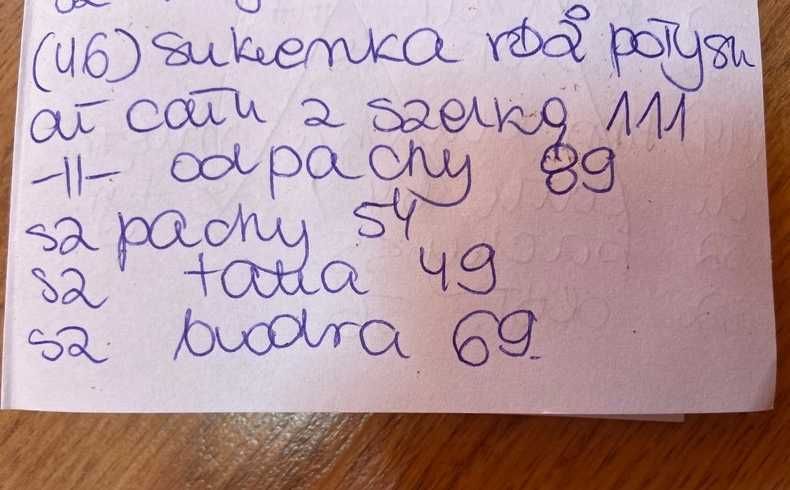 (46) sukienka róż połysk
dł całk z szelką 111
-||- od pachy 89
sz pachy 54
sz talia 49
sz biodra 69.